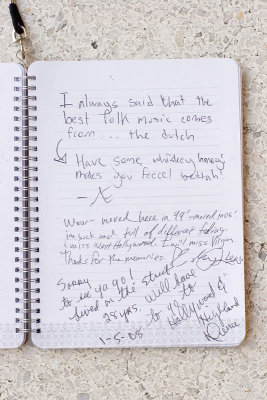 I always said that the
best folk music comes
from... the dutch
Have some whiskey honey,
makes you feeeel bettah!
- X
Wow - moved here in 99
I'm sick and full of different feelings
I miss West Hollywood. I will miss Virgin.
Thanks for the memories.
Sorry
to see ya go!
Lived on the street
28 yrs. Will have
to
Hollywood &
Highland
1-5-08